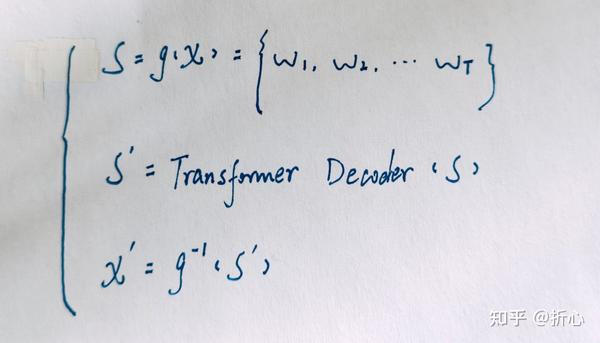 S = g(x) = {w₁, w₂, ⋯ w_T}
S' = Transformer Decoder (S)
x' = g⁻¹(S')
知乎 @折心